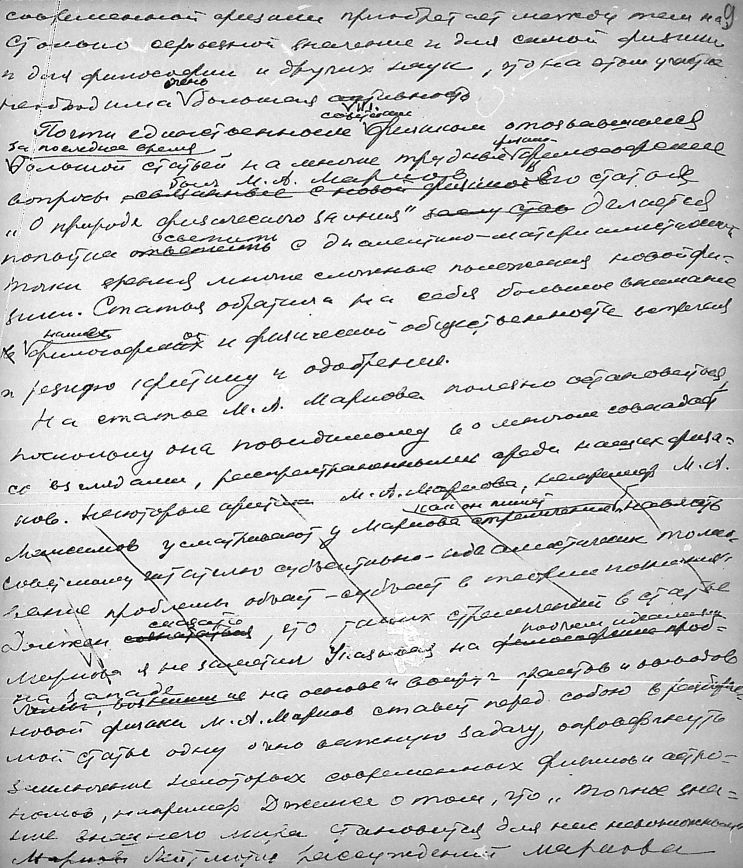 9
современной физики приобретает между тем на-
столько серьезное значение и для самой физики
и для философии и других наук, что на этом участке
очень
необходима большая активность
советским
Почти единственным физиком отозвавшимся
за последнее время физико-
большой статьей на многие трудные философские
был М.А. Марков
вопросы связанные с новой физикой Его статья
„О природе физического знания" делается
осветить
попытка ответить с диалектико-материалистической
точки зрения многие сложные положения новой фи-
зики. Статья обратила на себя большое внимание
нашей
философской и физической общественности встретив
и резкую критику и одобрение.
На статье М.А. Маркова полезно остановиться,
поскольку она повидимому во многом совпадает
со взглядами, распространенными среди наших физи-
ков. Некоторые критики М.А. Маркова, например М.А.
как он пишет
Максимов усматривают у Маркова стремление „навязать
советскому читателю субъективно-идеалистическое толко-
вание проблемы объект-субъект в теории познания".
сказать
Должен сознаться, что таких стремлений в статье
Маркова я не заметил Указывая на философские проб-
на западе
лемы, возникшие на основе и вокруг фактов и выводов
новой физики М.А. Марков ставит перед собою в разбирае-
мой статье одну очень важную задачу, опровергнуть
заключение некоторых современных физиков и астро-
номов, например Джинса о том, что „точное зна-
ние внешнего мира становится для нас невозможным"
Марков Лейтмотив рассуждений Маркова